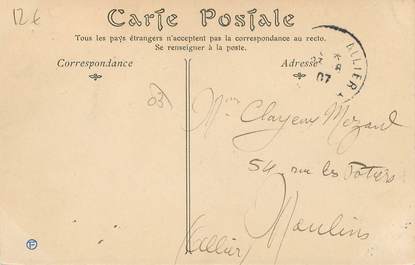 12€
Carte Postale
Tous les pays étrangers n'acceptent pas la correspondance au recto.
Se renseigner à la poste.
Correspondance
Adresse
ALLIER
07
03
Clayeux Mozard
54 rue les Potiers
Moulins
(Allier)